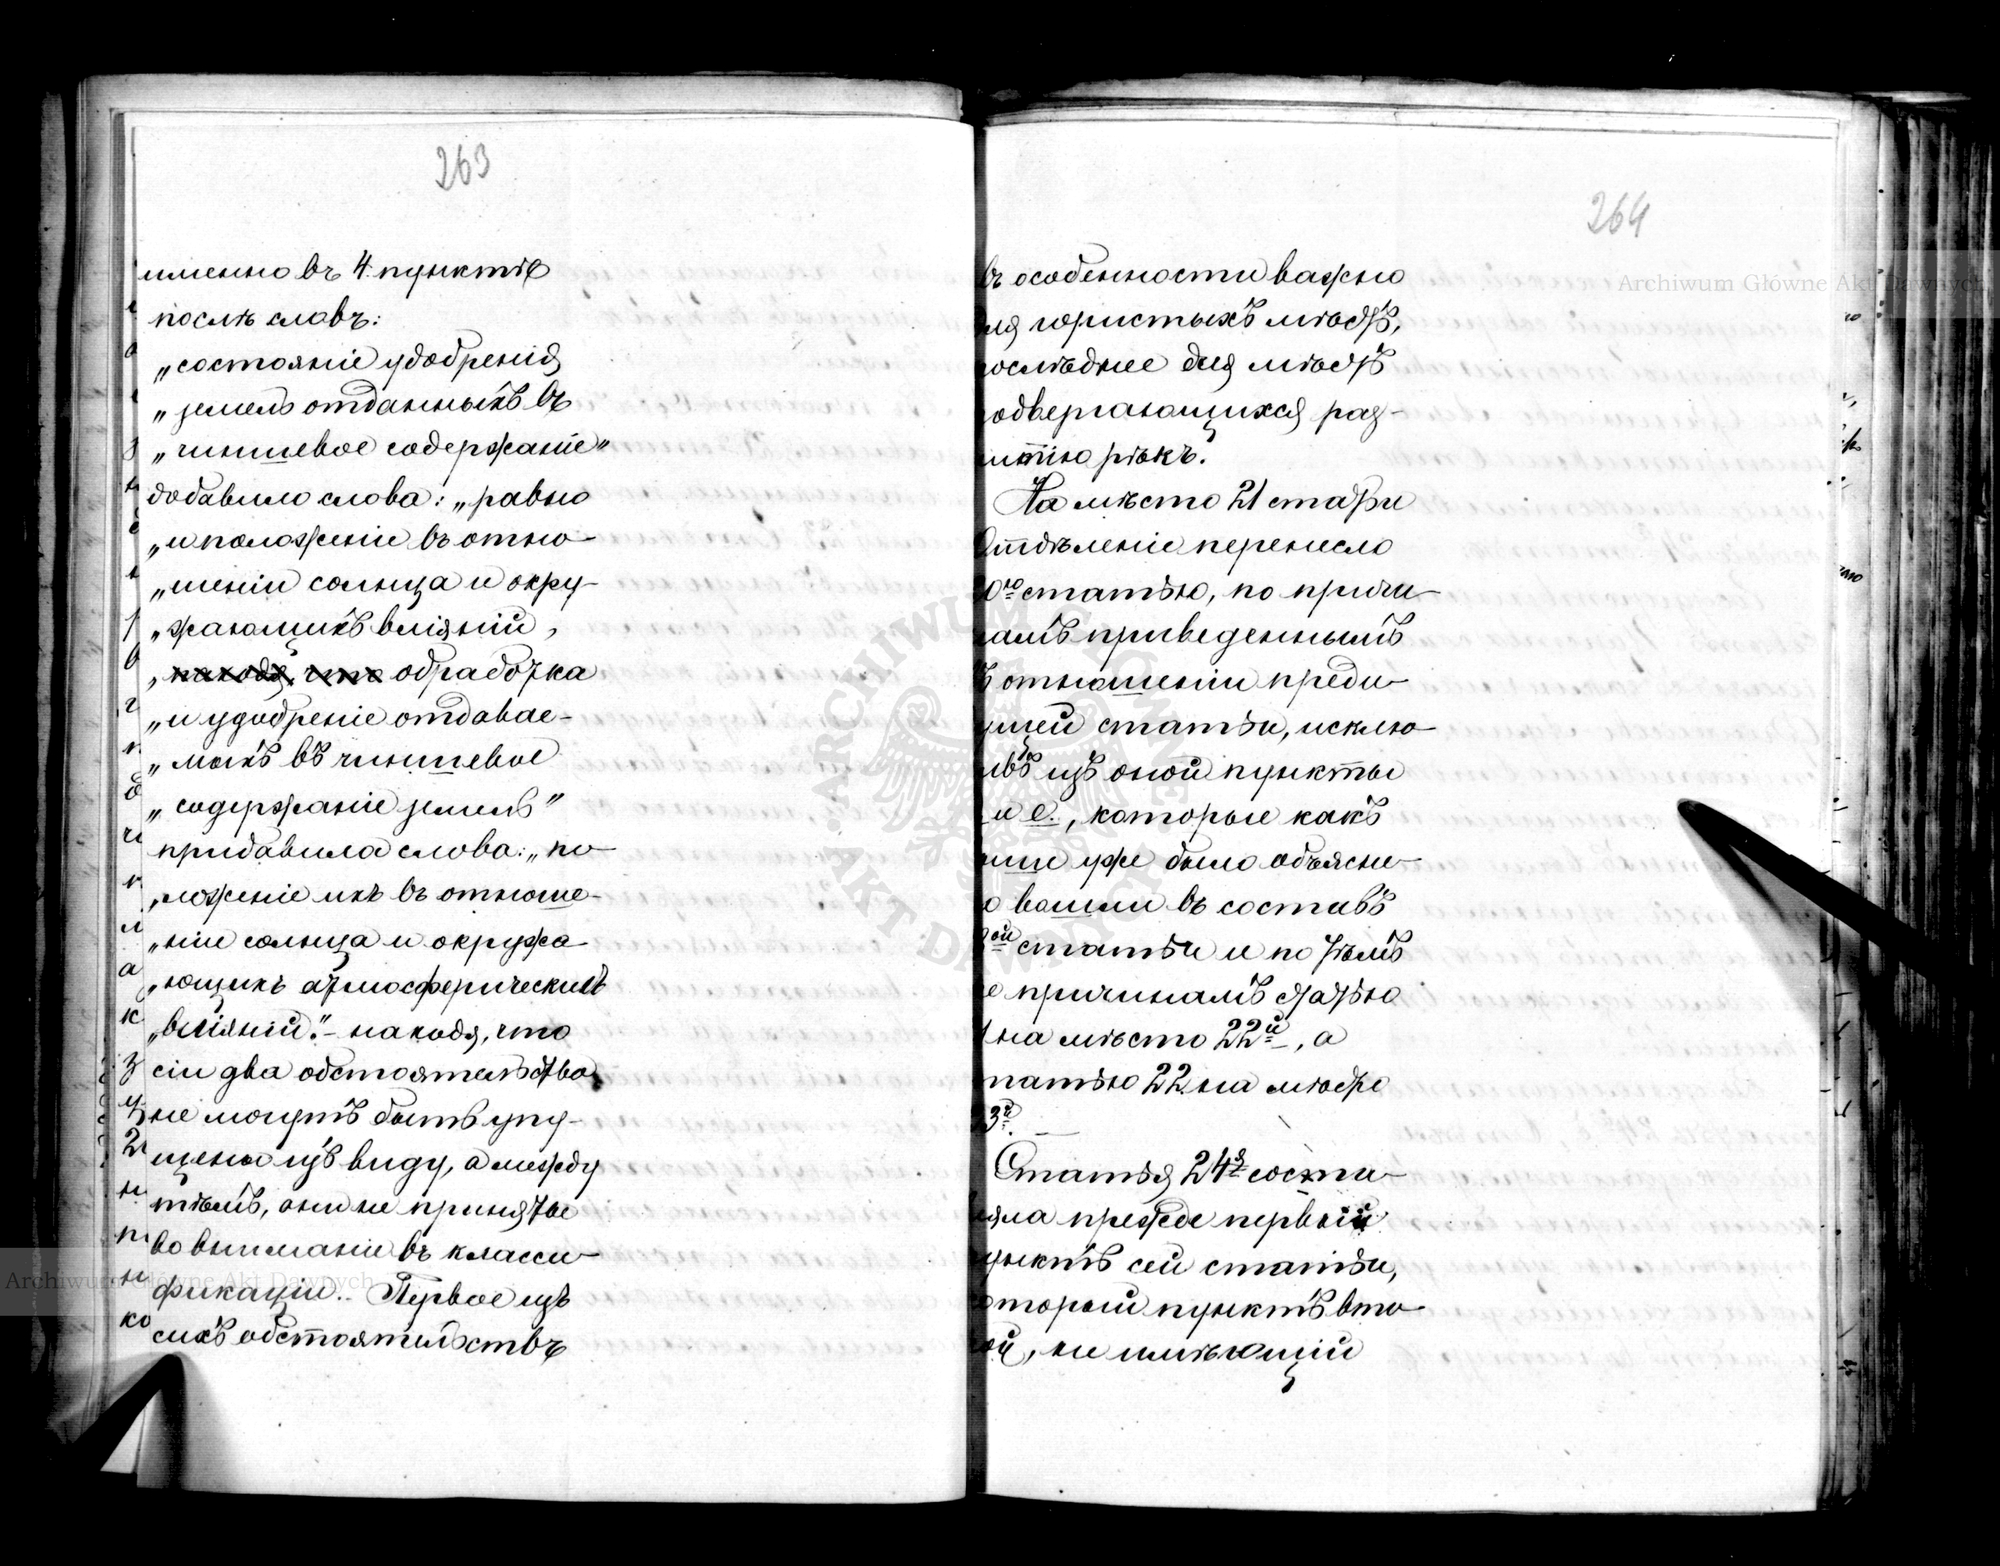 263
именно въ 4. пунктѣ
послѣ словъ:
„состояніе удобренія
„земель отданныхъ въ
„чиншевое содержаніе"
добавило слова: „равно
„и положеніе въ отно-
„шеніи солнца и окру-
„жающихъ вліяній,
„находя, что обработка
„и удобреніе отдавае-
„мыхъ въ чиншевое
„содержаніе земель"
придавила слова: „по-
„ложеніе ихъ въ отноше-
„ніи солнца и окружа-
„ющихъ атмосферическихъ
„вліяній". – находя, что
сіи два обстоятельства
не могутъ быть упу-
щены изъ виду, а между
тѣмъ, они не приняты
во вниманіе въ класси-
фикаціи. – Первое изъ
сихъ обстоятельствъ
264
въ особенности важно
для гористыхъ мѣстъ,
ослѣднее для мѣстъ
одвергающихся раз-
литію рѣкъ.
На мѣсто 21 статьи
Отдѣленіе перенесло
0ю статью, по причи-
амъ приведеннымъ
ъ отношеніи преды-
ущей статьи, исклю-
ивъ изъ оной пункты
и е., которые какъ
ыше уже было объясне-
о вошли въ составъ
ей статьи и по тѣмъ
е причинамъ статью
на мѣсто 22й, а
татью 22 на мѣсто
23й. —
Статья 24я соста-
ляла прежде первый
унктъ сей статьи,
оторый пунктъ вто-
ой, не имѣющій
Archiwum Główne Akt Dawnych
Archiwum Główne Akt Dawnych
ARCHIWUM GŁÓWNE AKT DAWNYCH